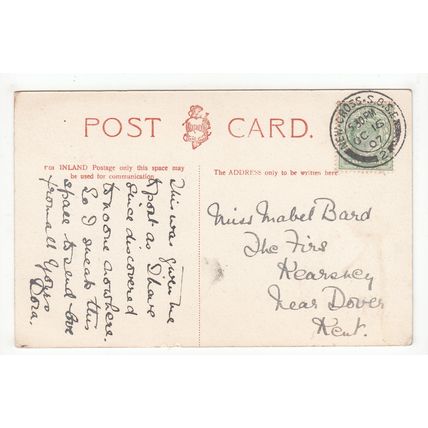 POST CARD.
NEW CROSS. S.O. S.E.
5.30 PM
OC 16
07
2
For INLAND Postage only this space may
be used for communication.
The ADDRESS only to be written here
This was given me
to post as I have
since discovered
to no one anywhere.
So I sneak this
space to send love
from all Yours
Dora.
Miss Mabel Bard
The Firs
Kearsney
Near Dover
Kent.